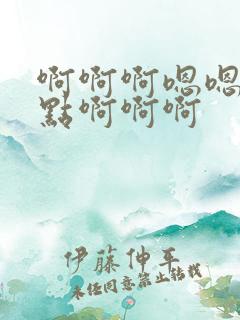 啊啊啊嗯嗯
點啊啊啊
伊藤伸平
未经同意禁止转载